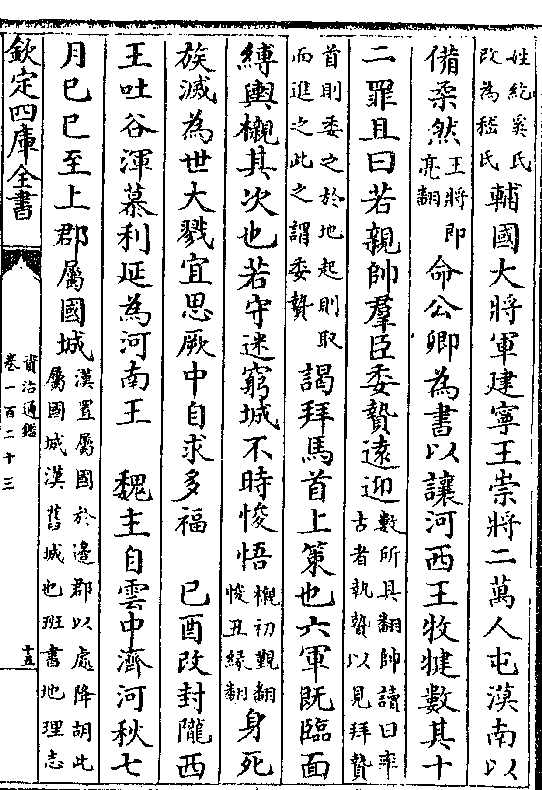 姓紇奚氏改為嵇氏輔國大將軍建寧王崇將二萬人屯漠南以
備柔然王將即亮翻命公卿為書以讓河西王牧犍數其十
二罪且曰若親帥羣臣委贄遠迎數所具翻帥讀曰率古者執贄以見拜贄
首則委之於地起則取而進之此之謂委贄謁拜馬首上策也六軍既臨面
縛輿櫬其次也若守迷窮城不時悛悟櫬初覲翻悛丑緣翻身死
族滅為世大戮宜思厥中自求多福　己酉改封隴西
王吐谷渾慕利延為河南王　魏主自雲中濟河秋七
月己巳至上郡屬國城漢置屬國於邊郡以處降胡此屬國城漢舊城也班書地理志
欽定四庫全書
資治通鑑
卷一百二十三
十五